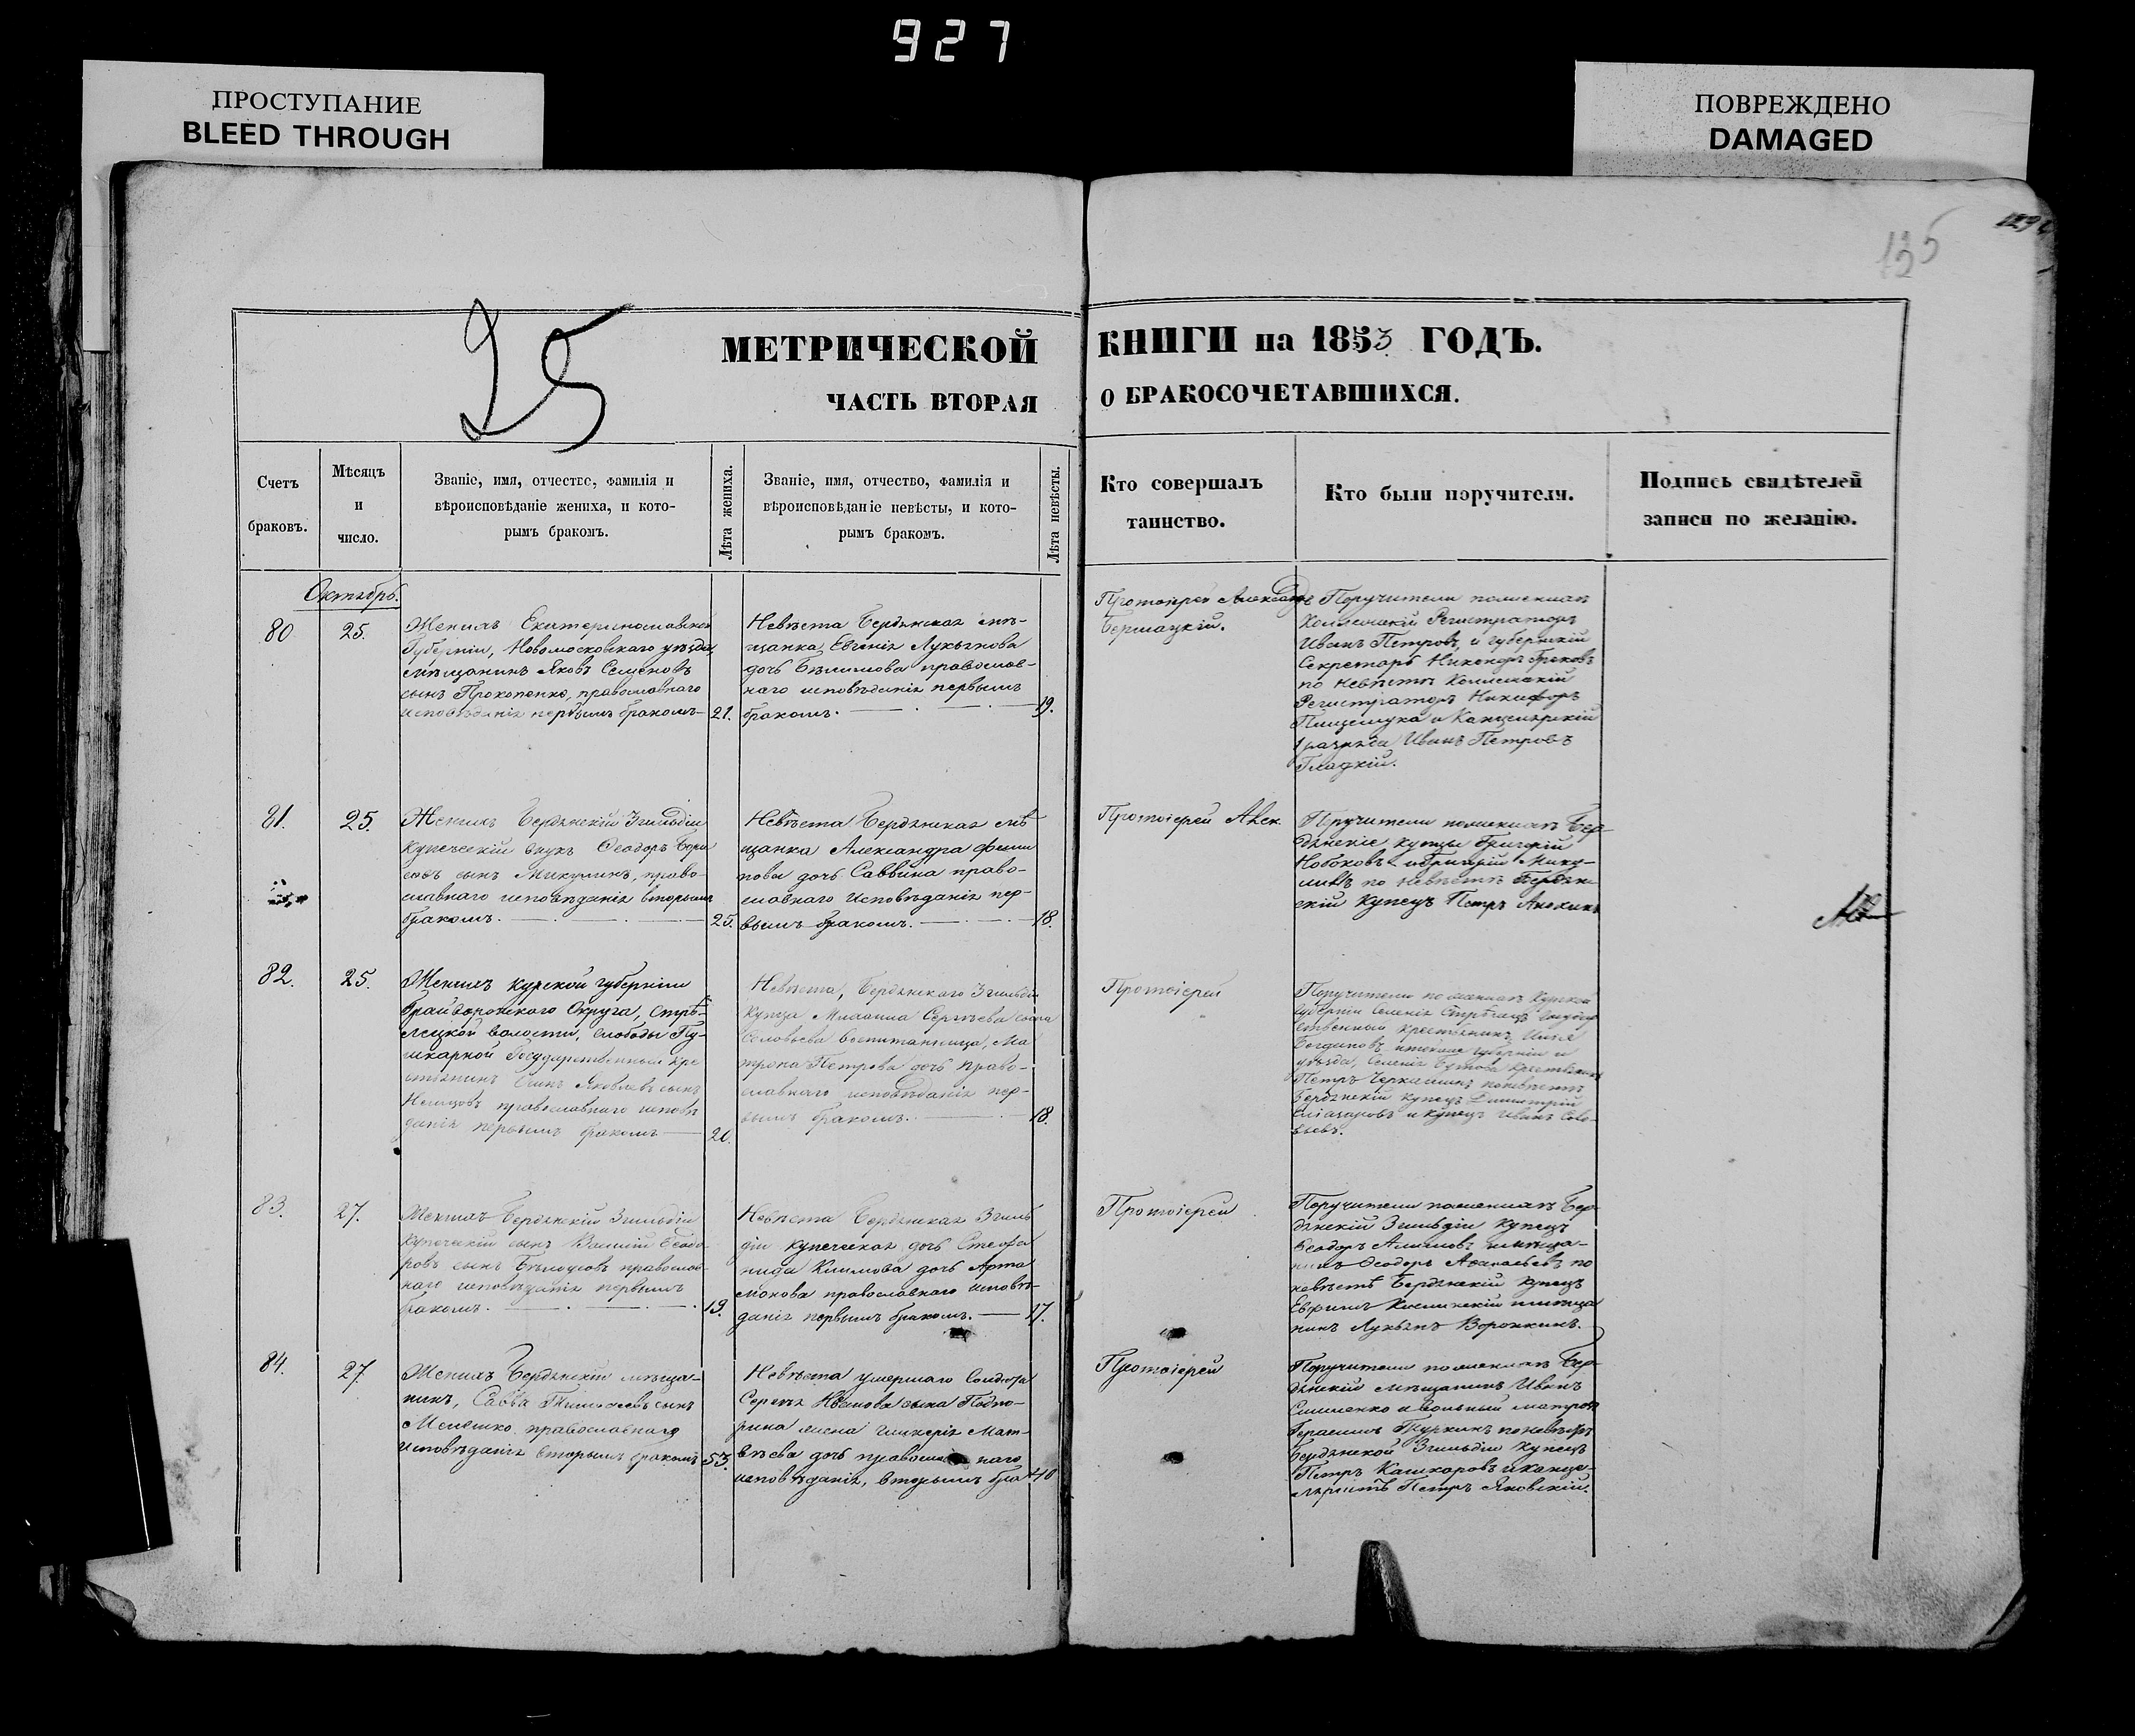 927
ПРОСТУПАНИЕ
BLEED THROUGH
ПОВРЕЖДЕНО
DAMAGED
135
25
МЕТРИЧЕСКОЙ КНИГИ на 1853 ГОДЪ.
ЧАСТЬ ВТОРАЯ О БРАКОСОЧЕТАВШИХСЯ.
Счетъ браковъ.
Мѣсяцъ и число.
Званіе, имя, отчество, фамилія и
вѣроисповѣданіе жениха, и кото-
рымъ бракомъ.
Лѣта жениха.
Званіе, имя, отчество, фамилія и
вѣроисповѣданіе невѣсты, и кото-
рымъ бракомъ.
Лѣта невѣсты.
Кто совершалъ
таинство.
Кто были поручители.
Подпись свидѣтелей
записи по желанію.
Октябрь.
80
25.
Женихъ Екатеринославской
Губерніи, Новомосковскаго уѣзда
мѣщанинъ Яковъ Семеновъ
сынъ Прокопенко, православнаго
исповѣданія первымъ бракомъ
21.
Невѣста Бердянская мѣ-
щанка, Евгенія Лукьянова
дочь Бѣликова православ-
наго исповѣданія первымъ
бракомъ.
19.
Протоіерей Александръ
Поручители по женихѣ
Коллежскій Регистраторъ
Иванъ Петровъ, и губернскій
Секретарь Никандръ
по невѣстѣ Коллежскій
Регистраторъ Никифоръ
и Канцелярскій
1 разряда Иванъ Петровъ
Гладкій.
81.
25.
Женихъ Бердянскій 3 гильдіи
купеческій внукъ Ѳеодоръ Бори
совъ сынъ Микулинъ, право-
славнаго исповѣданія вторымъ
бракомъ.
25.
Невѣста Бердянская мѣ
щанка Александра Фили
пова дочь Саввина право-
славнаго исповѣданія пер-
вымъ бракомъ.
18.
Протоіерей Алек.
Поручители по женихѣ Бер-
дянскіе купцы Григорій
Набоковъ и Григорій Мику-
линъ по невѣстѣ Бердян
скій купецъ Петръ Анохинъ
82.
25.
Женихъ Курской губерніи
Грайворонскаго Округа, Стрѣ-
лецкой волости, слободы Пу-
шкарной Государственный кре
стьянинъ Яковлевъ сынъ
Немцовъ православнаго исповѣ
данія первымъ бракомъ
20.
Невѣста, Бердянскаго 3 гильдіи
купца Михаила Сергѣева сына
Соловьева воспитанница, Ма
трона Петрова дочь право-
славнаго исповѣданія пер-
вымъ бракомъ.
18.
Протоіерей
Поручители по женихѣ Курской
губерніи Селенія Государ
ственный крестьянинъ Илья
Богдановъ губерніи и
уѣзда, Селенія крестьянинъ
Петръ по невѣстѣ
Бердянскій купецъ Димитрій
и купецъ Иванъ Соло-
вьевъ.
83.
27.
Женихъ Бердянскій 3 гильдіи
купеческій сынъ Василій Ѳеодо
ровъ сынъ Бѣлоусовъ православ-
наго исповѣданія первымъ
бракомъ.
19.
Невѣста Бердянская 3 гиль
діи купеческая дочь Стефа
нида Климова дочь Арта
монова православнаго исповѣ-
данія первымъ бракомъ.
17.
Протоіерей
Поручители по женихѣ Бер-
дянскій 3 гильдіи купецъ
Ѳеодоръ и мѣща-
нинъ Ѳеодоръ Афанасьевъ по
невѣстѣ Бердянскій купецъ
Ефимъ и мѣща
нинъ Лукьянъ Воронкинъ.
84.
27
Женихъ Бердянскій мѣща-
нинъ, Савва Тимофеевъ сынъ
православнаго
исповѣданія вторымъ бракомъ
53.
Невѣста умершаго Солдата
Сергѣя Иванова сына Подпо-
рина жена Гликерія Мат-
вѣева дочь православнаго
исповѣданія, вторымъ бра
40
Протоіерей
Поручители по женихѣ Бер-
дянскій мѣщанинъ Иванъ
и вольный матрозъ
Герасимъ по невѣстѣ
Бердянской 3 гильдіи купецъ
Петръ Кашкаровъ и канце-
ляристъ Петръ Яновскій.